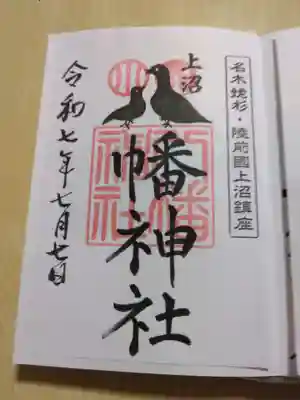 名木鏡杉・陸前國上沼鎮座
上沼
八幡神社
令和七年七月七日